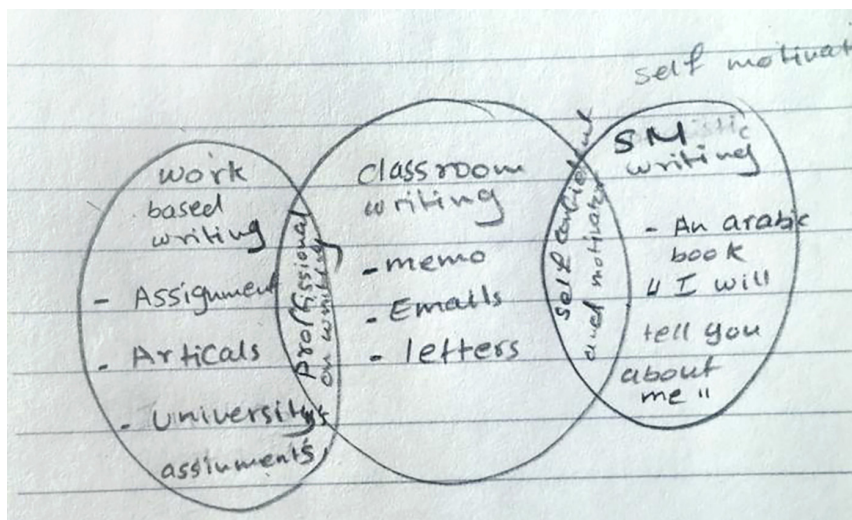 self motivat
work
based
writing
- Assignment
- Articals
- University
assinments
Proffissional
classroom
writing
- memo
- Emails
- letters
Self confident
and motivator
SM
writing
- An arabic
book
" I will
tell you
about
me "